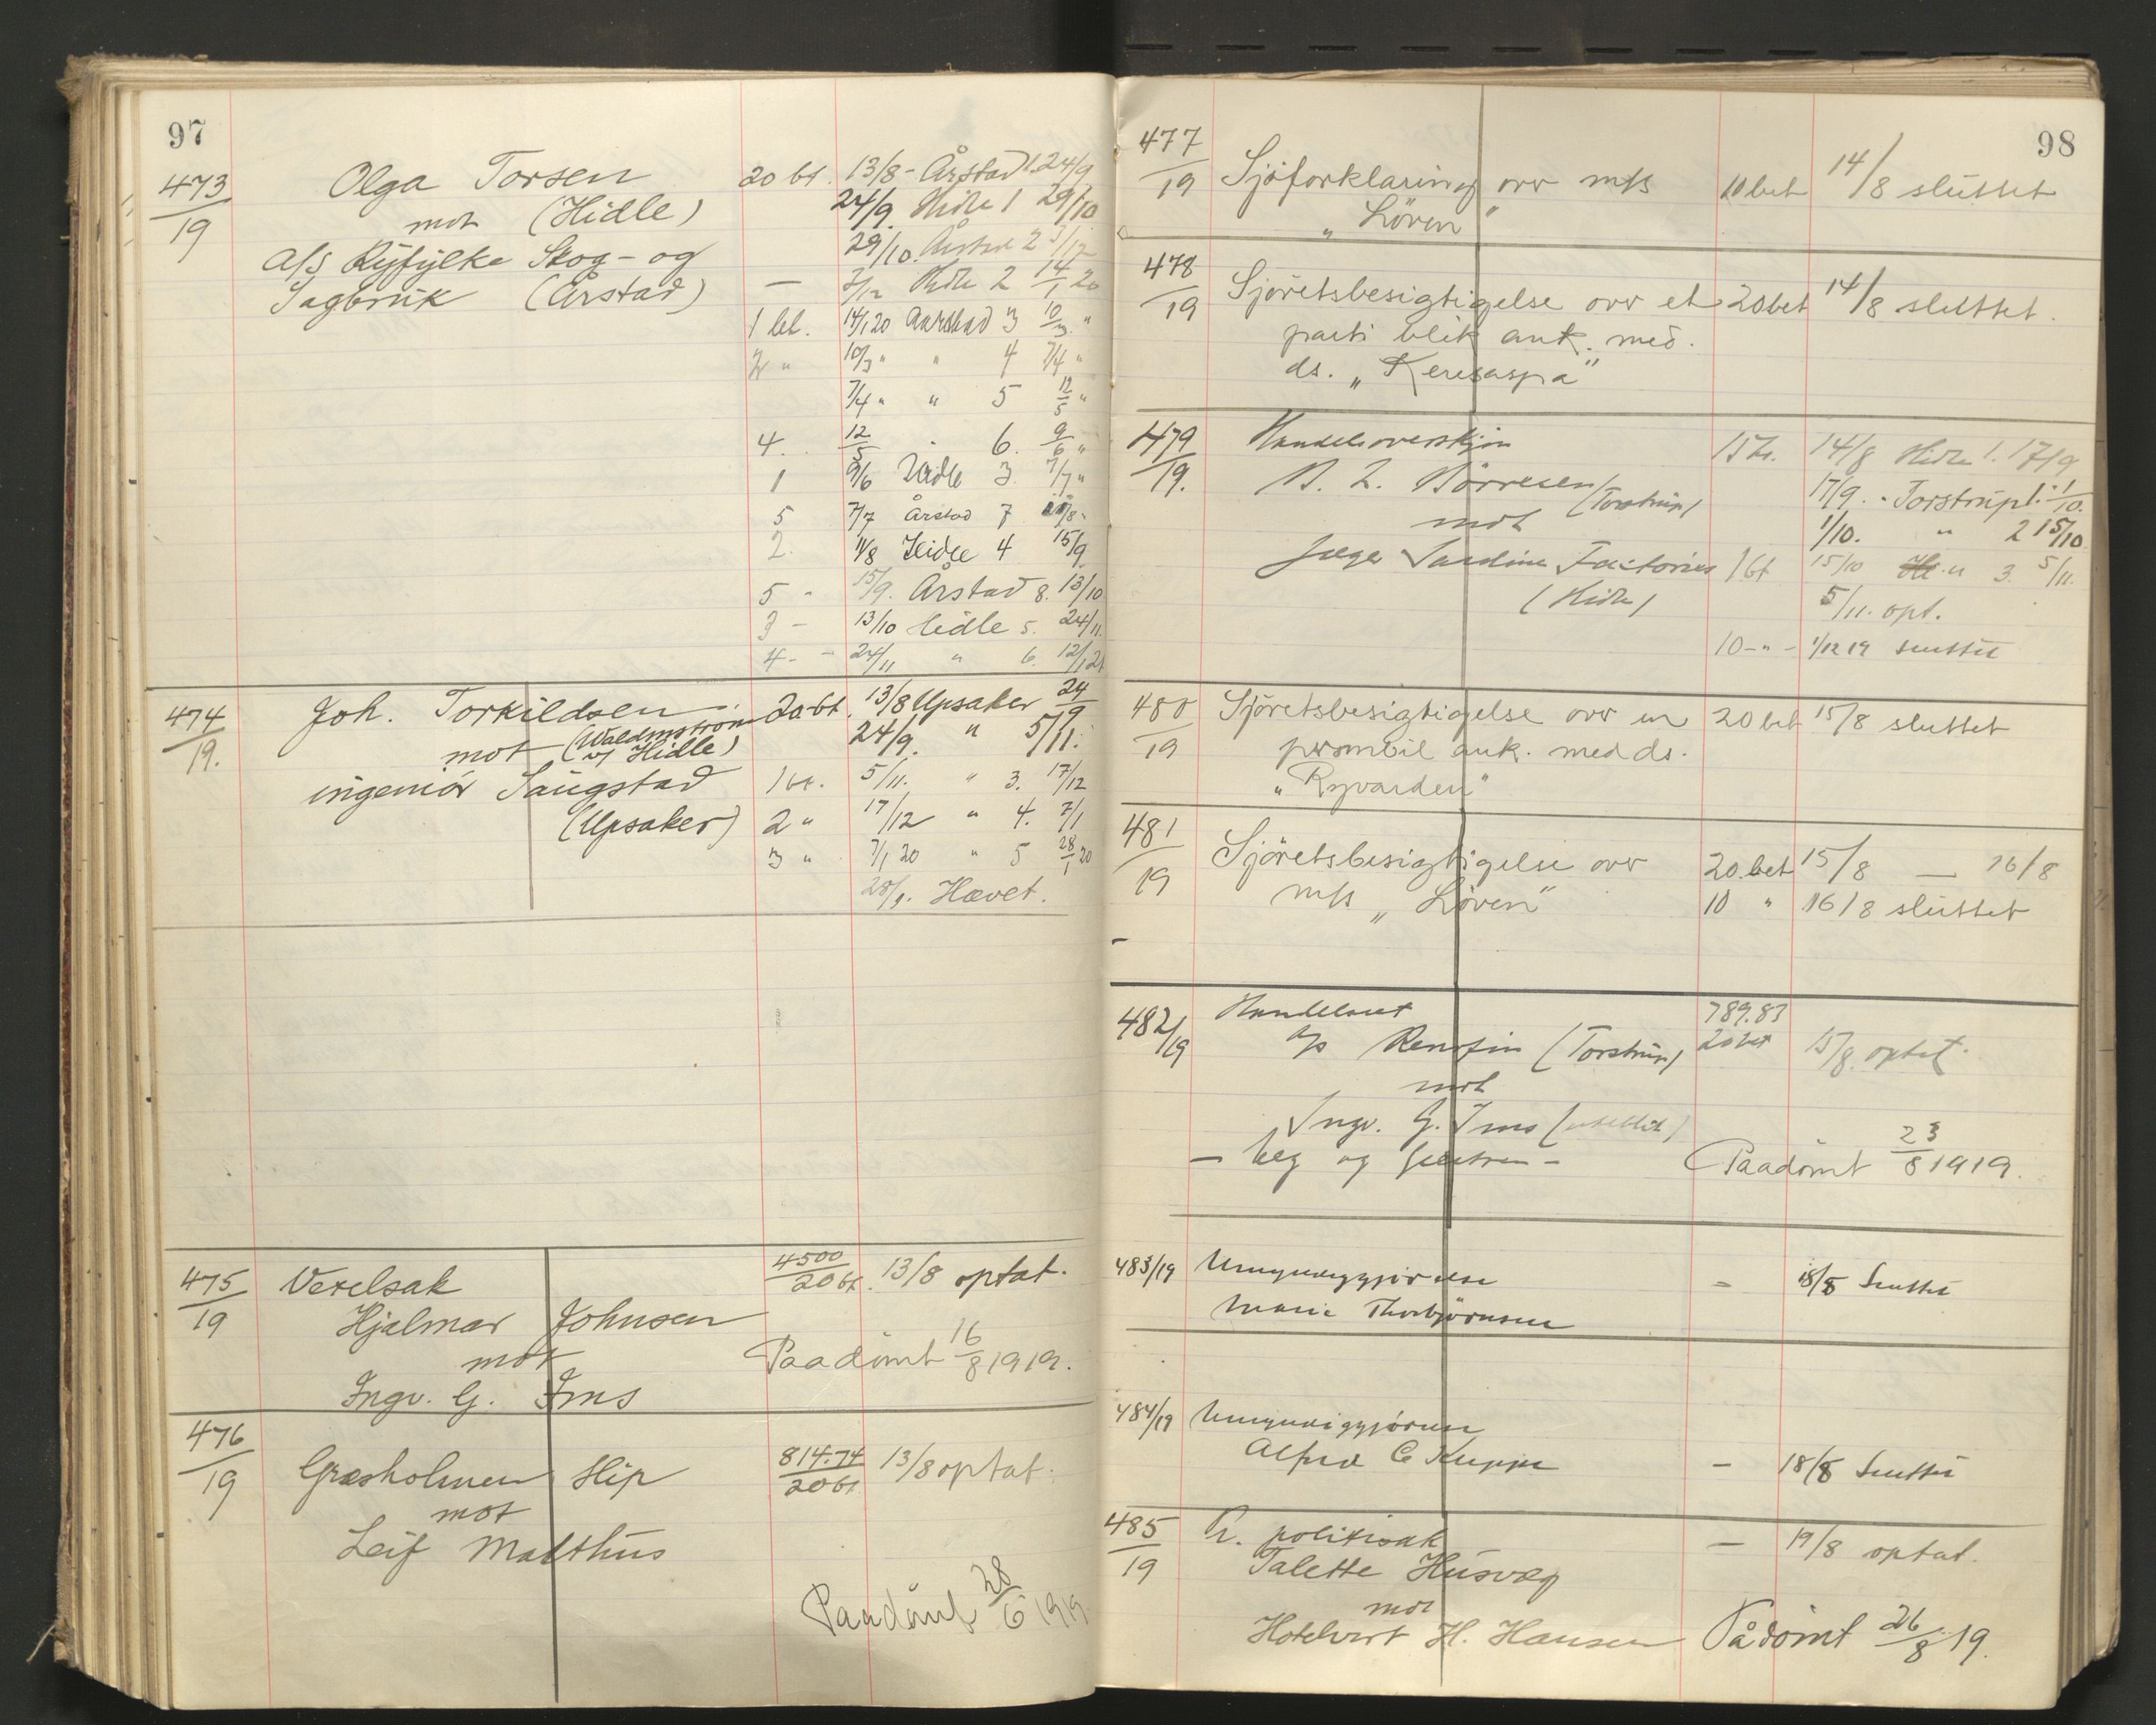 97
473/19 Olga Torsen 20 bt. 13/8 - Årstad 1. 24/9
mot (Hidle) 24/9. Hidle 1 29/10
A/S Ryfylke Skog- og 29/10. Årstad 2 3/12
Sagbruk (Årstad) — 3/12 Hidle 2 14/1 20
1 bt. 14/1 20 Aarstad 3 10/3 "
2 " 10/3 " " 4 7/4 "
7/4 " " 5 12/5 "
4. 12/5 " 6. 9/6 "
1 9/6 Hidle 3. 7/7 "
5 7/7 Årstad 7
2. 11/8 Hidle 4 15/9
5 - 15/9. Årstad 8. 13/10
3 - 13/10 Hidle 5. 24/11.
4 - - 24/11 " 6. 12/1 21
474/19. Joh. Torkildsen 20 bt. 13/8 Upsaker 24/9
mot (Waldmstrøm v/ Hidle) 24/9. " 5/11.
ingeniör Saugstad 1 bt. 5/11. " 3. 17/12
(Upsaker) 2 " 17/12 " 4. 7/1
3 " 7/1 20 " 5 28/1 20
28/1. Hævet.
475/19 Vexelsak 4500/20 bt. 13/8 optat.
Hjalmar Johnsen
mot Paadömt 16/8 1919.
Ingv. G. Ims
476/19 Græsholmen Slip 814.74/20 bt 13/8 optat.
mot
Leif Malthus
Paadömt 28/6 1919.
98
477/19 Sjöforklaring ovr m/s 10 bet 14/8 sluttet
"Löven"
478/19 Sjöretsbesigtigelse ovr et 20 bet 14/8 sluttet.
parti blik ank. med.
ds. "Keresaspa"
479/19. Handelsoverskjön 15 kr. 14/8 Hidle 1. 17/9
B. L. Börresen (Torstrup) 17/9. - Torstrup 1. 1/10.
mot 1/10. " 2 15/10
Jæger Sardine Factories 1 bt 15/10 " 3. 5/11.
(Hidle) 5/11. opt.
10 - " - 1/12 19 sluttet
480/19 Sjöretsbesigtigelse ovr en 20 bet 15/8 sluttet
personbil ank. med ds.
"Ryvarden"
481/19 Sjöretsbesigtigelse ovr 20. bet 15/8 — 16/8
m/s "Löven" 10 " 16/8 sluttet
482/19 Handelsret 789.83
A/S Rensfin (Torstrup) 20 bet 15/8. optat.
mot
Ingv. G. Ims (uteblit)
Paadömt 23/8 1919.
483/19 Umyndiggjörelse - 18/8 Sluttet
Marie Thorbjörnsen
484/19 Umyndiggjörelse
Alfred C - 18/8 Sluttet
485/19 Pr. politisak - 19/8 optat.
Talette Husvæg
mot
Hotelvert H. Hansen Pådömt 26/8 19.